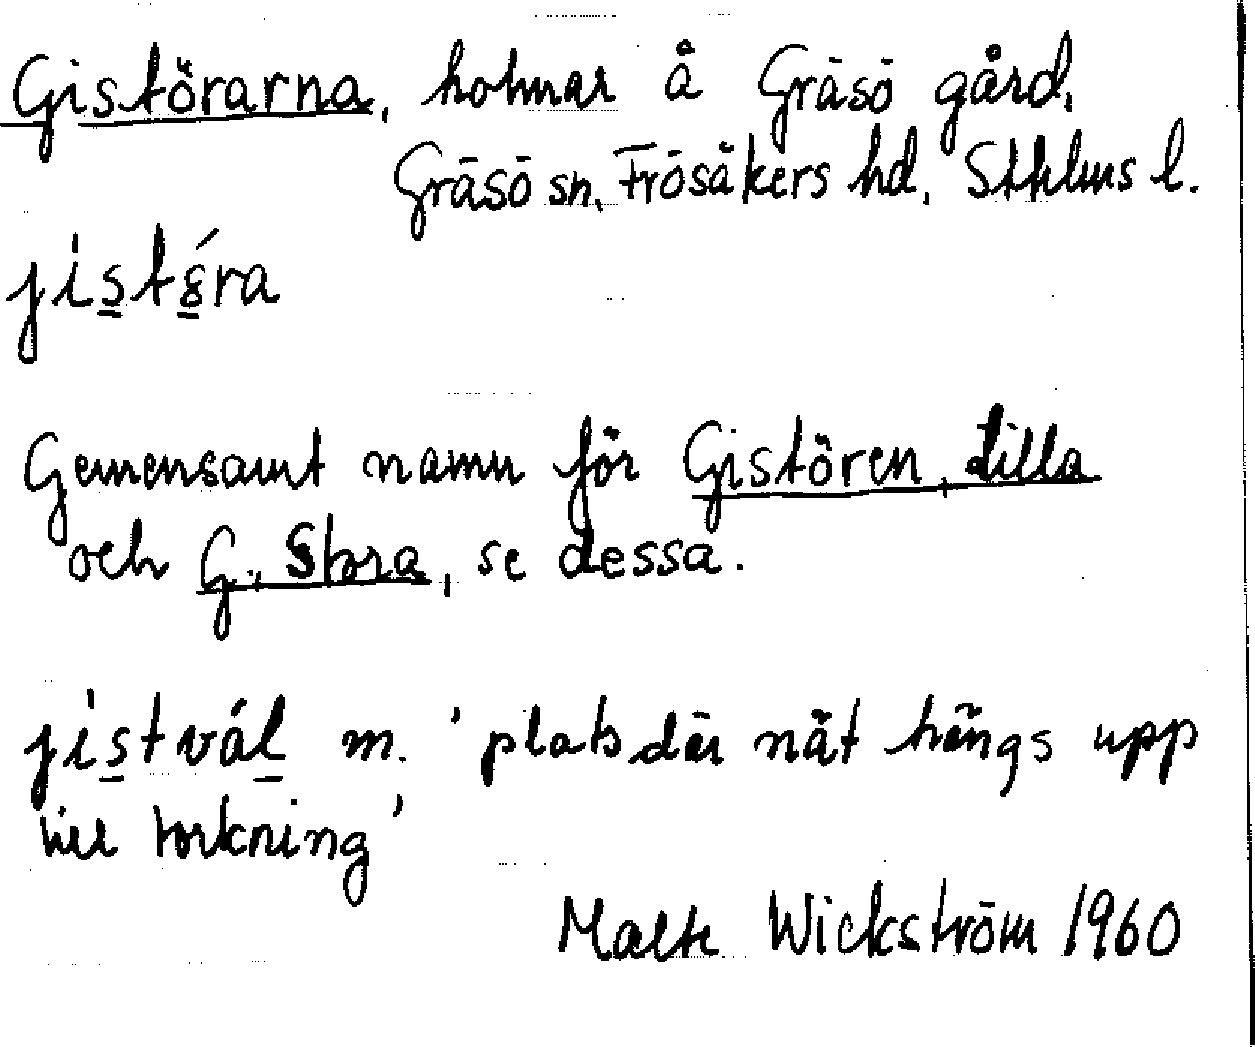 Gistörarna, holmar å Gräsö gård,
Gräsö sn, Frösåkers hd, Sthlms l.
jistǿra
Gemensamt namn för Gistören, Lilla
och G., Stora, se dessa.
jistvál m. 'plats där nät hängs upp
till torkning'
Malte Wickström 1960